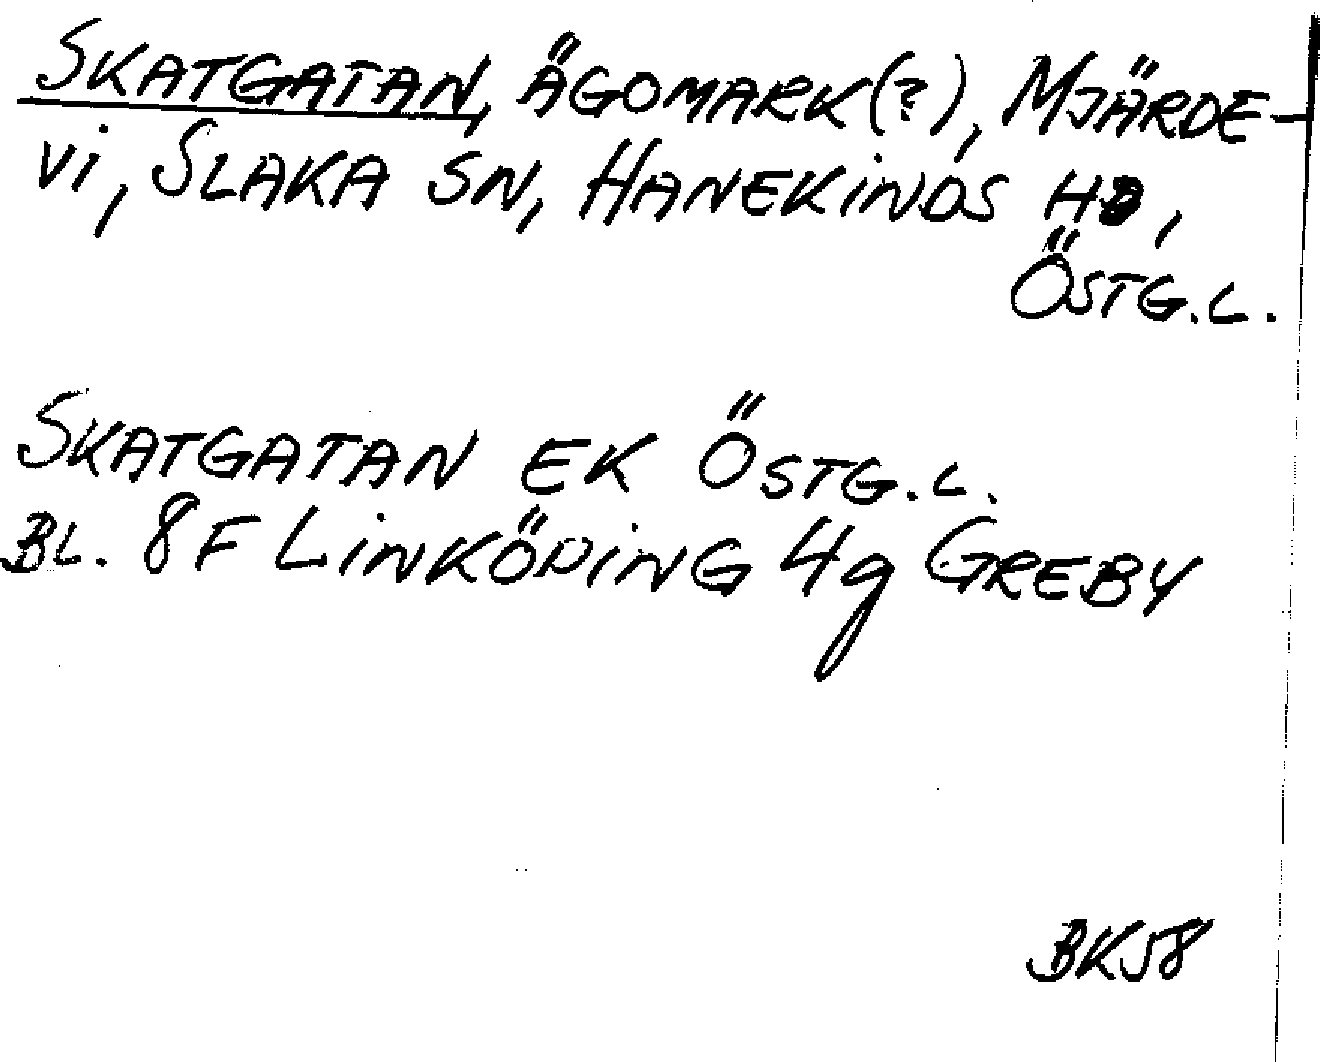 SKATGATAN, ÄGOMARK(?), MJÄRDE-
VI, SLAKA SN, HANEKINDS HD,
ÖSTG.L.
SKATGATAN EK ÖSTG.L.
BL. 8F LINKÖPING 4g GREBY
BK58